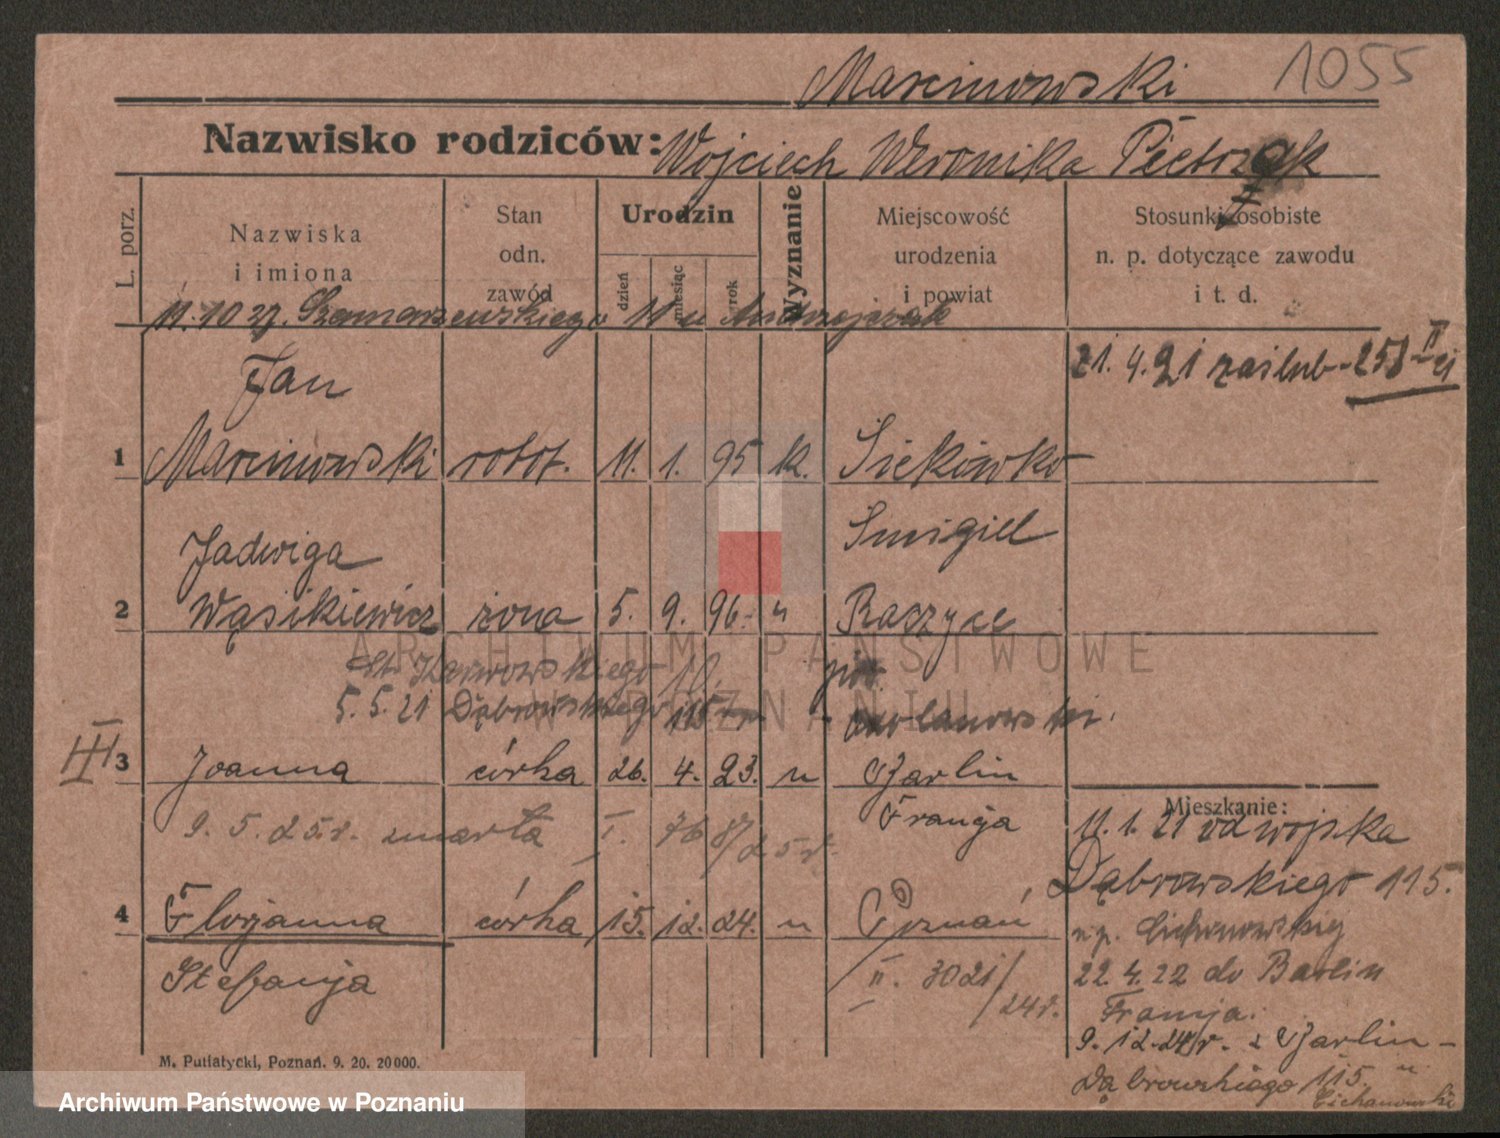 Marcinowski 1055
Nazwisko rodziców: Wojciech Weronika Pietrzak
L. porz.
Nazwiska i imiona
Stan odn. zawód
Urodzin
dzień miesiąc rok
Wyznanie
Miejscowość urodzenia i powiat
Stosunki osobiste n. p. dotyczące zawodu i t. d.
11.10 27. Szamarzewskiego 11 u Andrzejczak
Jan 21. 4. 21 zaślub - 258 II
1 Marcinowski robot. 11. 1. 95 k. Siekówko
Śmigiel
Jadwiga
2 Wąsikiewicz żona 5. 9. 96. " Raszyce
Karwowskiego 10.
5. 5. 21 Dąbrowskiego 115
III 3 Joanna córka 26. 4. 23. " Barlin
9. 5. 25 r. zmarła I. 768/25 r. Francja
Mieszkanie:
11. 1. 21 od wojska
Dąbrowskiego 115.
4 Florjanna córka 15. 12. 24. " Poznań
Stefanja II. 3021/24 r.
22. 4. 22 do Barlin
Francja.
9. 12. 24 r. z Barlin -
Dąbrowskiego 115 u
Cichanowski
M. Putiatycki, Poznań. 9. 20. 20 000.
ARCHIWUM PAŃSTWOWE
W POZNANIU
Archiwum Państwowe w Poznaniu